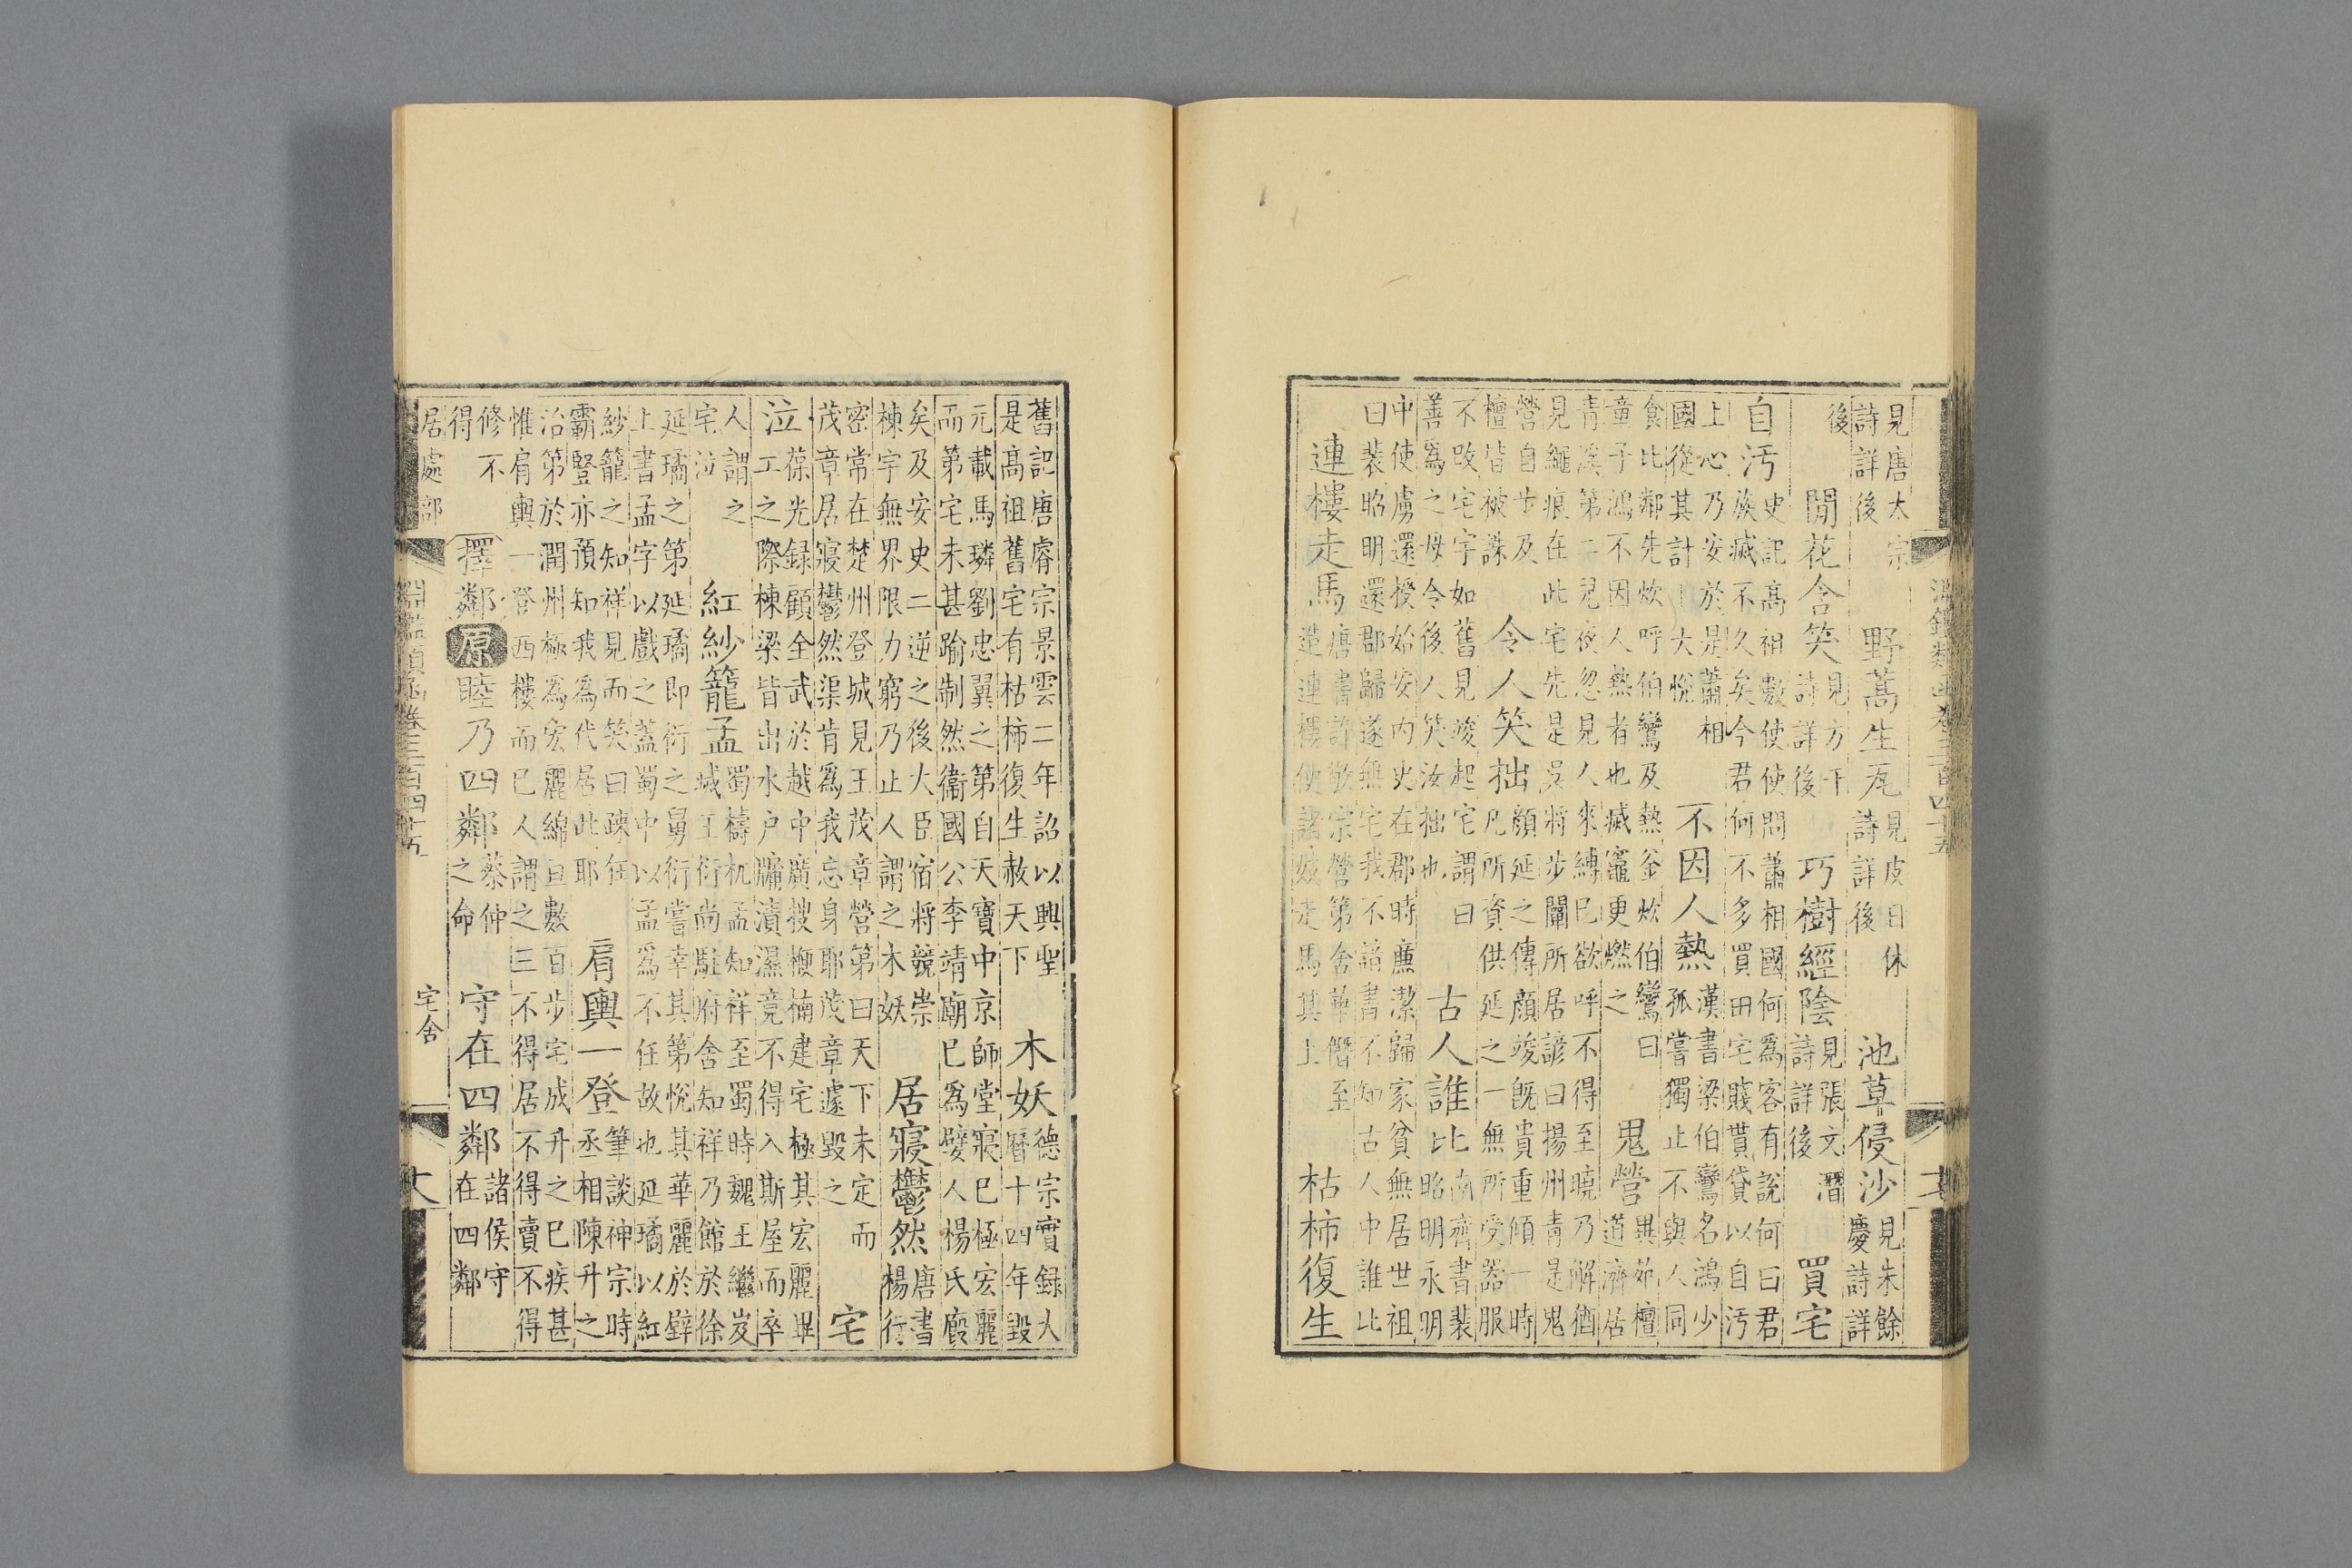 淵鑑類函卷三百四十五
見唐太宗詩詳後 野蒿生瓦 見皮日休詩詳後 池草侵沙 見朱餘慶詩詳
後 閒花含笑 見方干詩詳後 巧樹經陰 見張文潛詩詳後 買宅
自汚 史記高祖數使使問蕭相國何爲客有說何曰君族滅不久矣今君何不多買田宅賤貰貸以自汚
上心乃安於是蕭相國從其計上大悅 不因人熱 漢書梁伯鸞名鴻少孤嘗獨止不與人同
食比鄰先炊呼伯鸞及熱釜炊伯鸞曰童子鴻不因人熱者也滅竈更燃之 鬼營 異苑檀道濟居
青溪第二兒夜忽見人來縛已欲呼不得至曉乃解猶見繩痕在此宅先是吳將步闡所居諺曰揚州青是鬼
營自步及檀皆被誅 令人笑拙 顏延之傳顏竣既貴重傾一時凡所資供延之一無所受器服
不改宅宇如舊見竣起宅謂曰善爲之毋令後人笑汝拙也 古人誰比 南齊書裴昭明永明
中使虜還授始安內史在郡時廉潔歸家貧無居世祖曰裴昭明還郡歸遂無宅我不諳書不知古人中誰比
連樓走馬 唐書許敬宗營第舍華僭至造連樓使諸妓走馬其上 枯柿復生
舊記唐睿宗景雲二年詔以興聖是高祖舊宅有枯柿復生赦天下 木妖 德宗實録大曆十四年毀
元載馬璘劉忠翼之第自天寶中京師堂寢已極宏麗而第宅未甚踰制然衛國公李靖廟已爲嬖人楊氏廄
矣及安史二逆之後大臣宿將競崇棟宇無界限力窮乃止人謂之木妖 居寢鬱然 唐書楊行
密常在楚州登城見王茂章營第曰天下未定而茂章居寢鬱然渠肯爲我忘身耶茂章遽毀之 宅
泣 葆光録顧全武於越中廣搜楩楠建宅極其宏麗畢工之際棟梁皆出水户牖漬濕竟不得入斯屋而卒
人謂之宅泣 紅紗籠孟 蜀檮杌孟知祥至蜀時魏王繼岌滅王衍尚駐府舍知祥乃館於徐
延璚之第延璚即衍之舅衍嘗幸其第悅其華麗於壁上書孟字以戲之蓋蜀中以孟爲不任故也延璚以紅
紗籠之知祥見而笑曰疎狂霸豎亦預知我爲代居此耶 肩輿一登 筆談神宗時丞相陳升之
治第於潤州極爲宏麗綿亘數百步宅成升之已疾甚惟肩輿一登西樓而已人謂之三不得居不得賣不得
修不得 擇鄰 原 睦乃四鄰 蔡仲之命 守在四鄰 諸侯守在四鄰
居處部 淵鑑類函卷三百四十五 宅舍